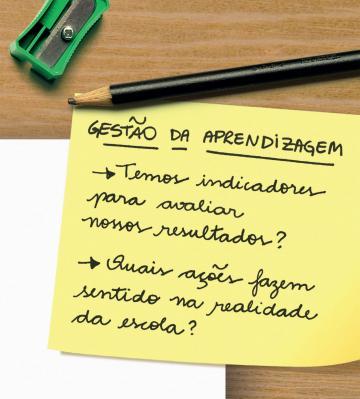 GESTÃO DA APRENDIZAGEM
→ Temos indicadores
para avaliar
nossos resultados?
→ Quais ações fazem
sentido na realidade
da escola?